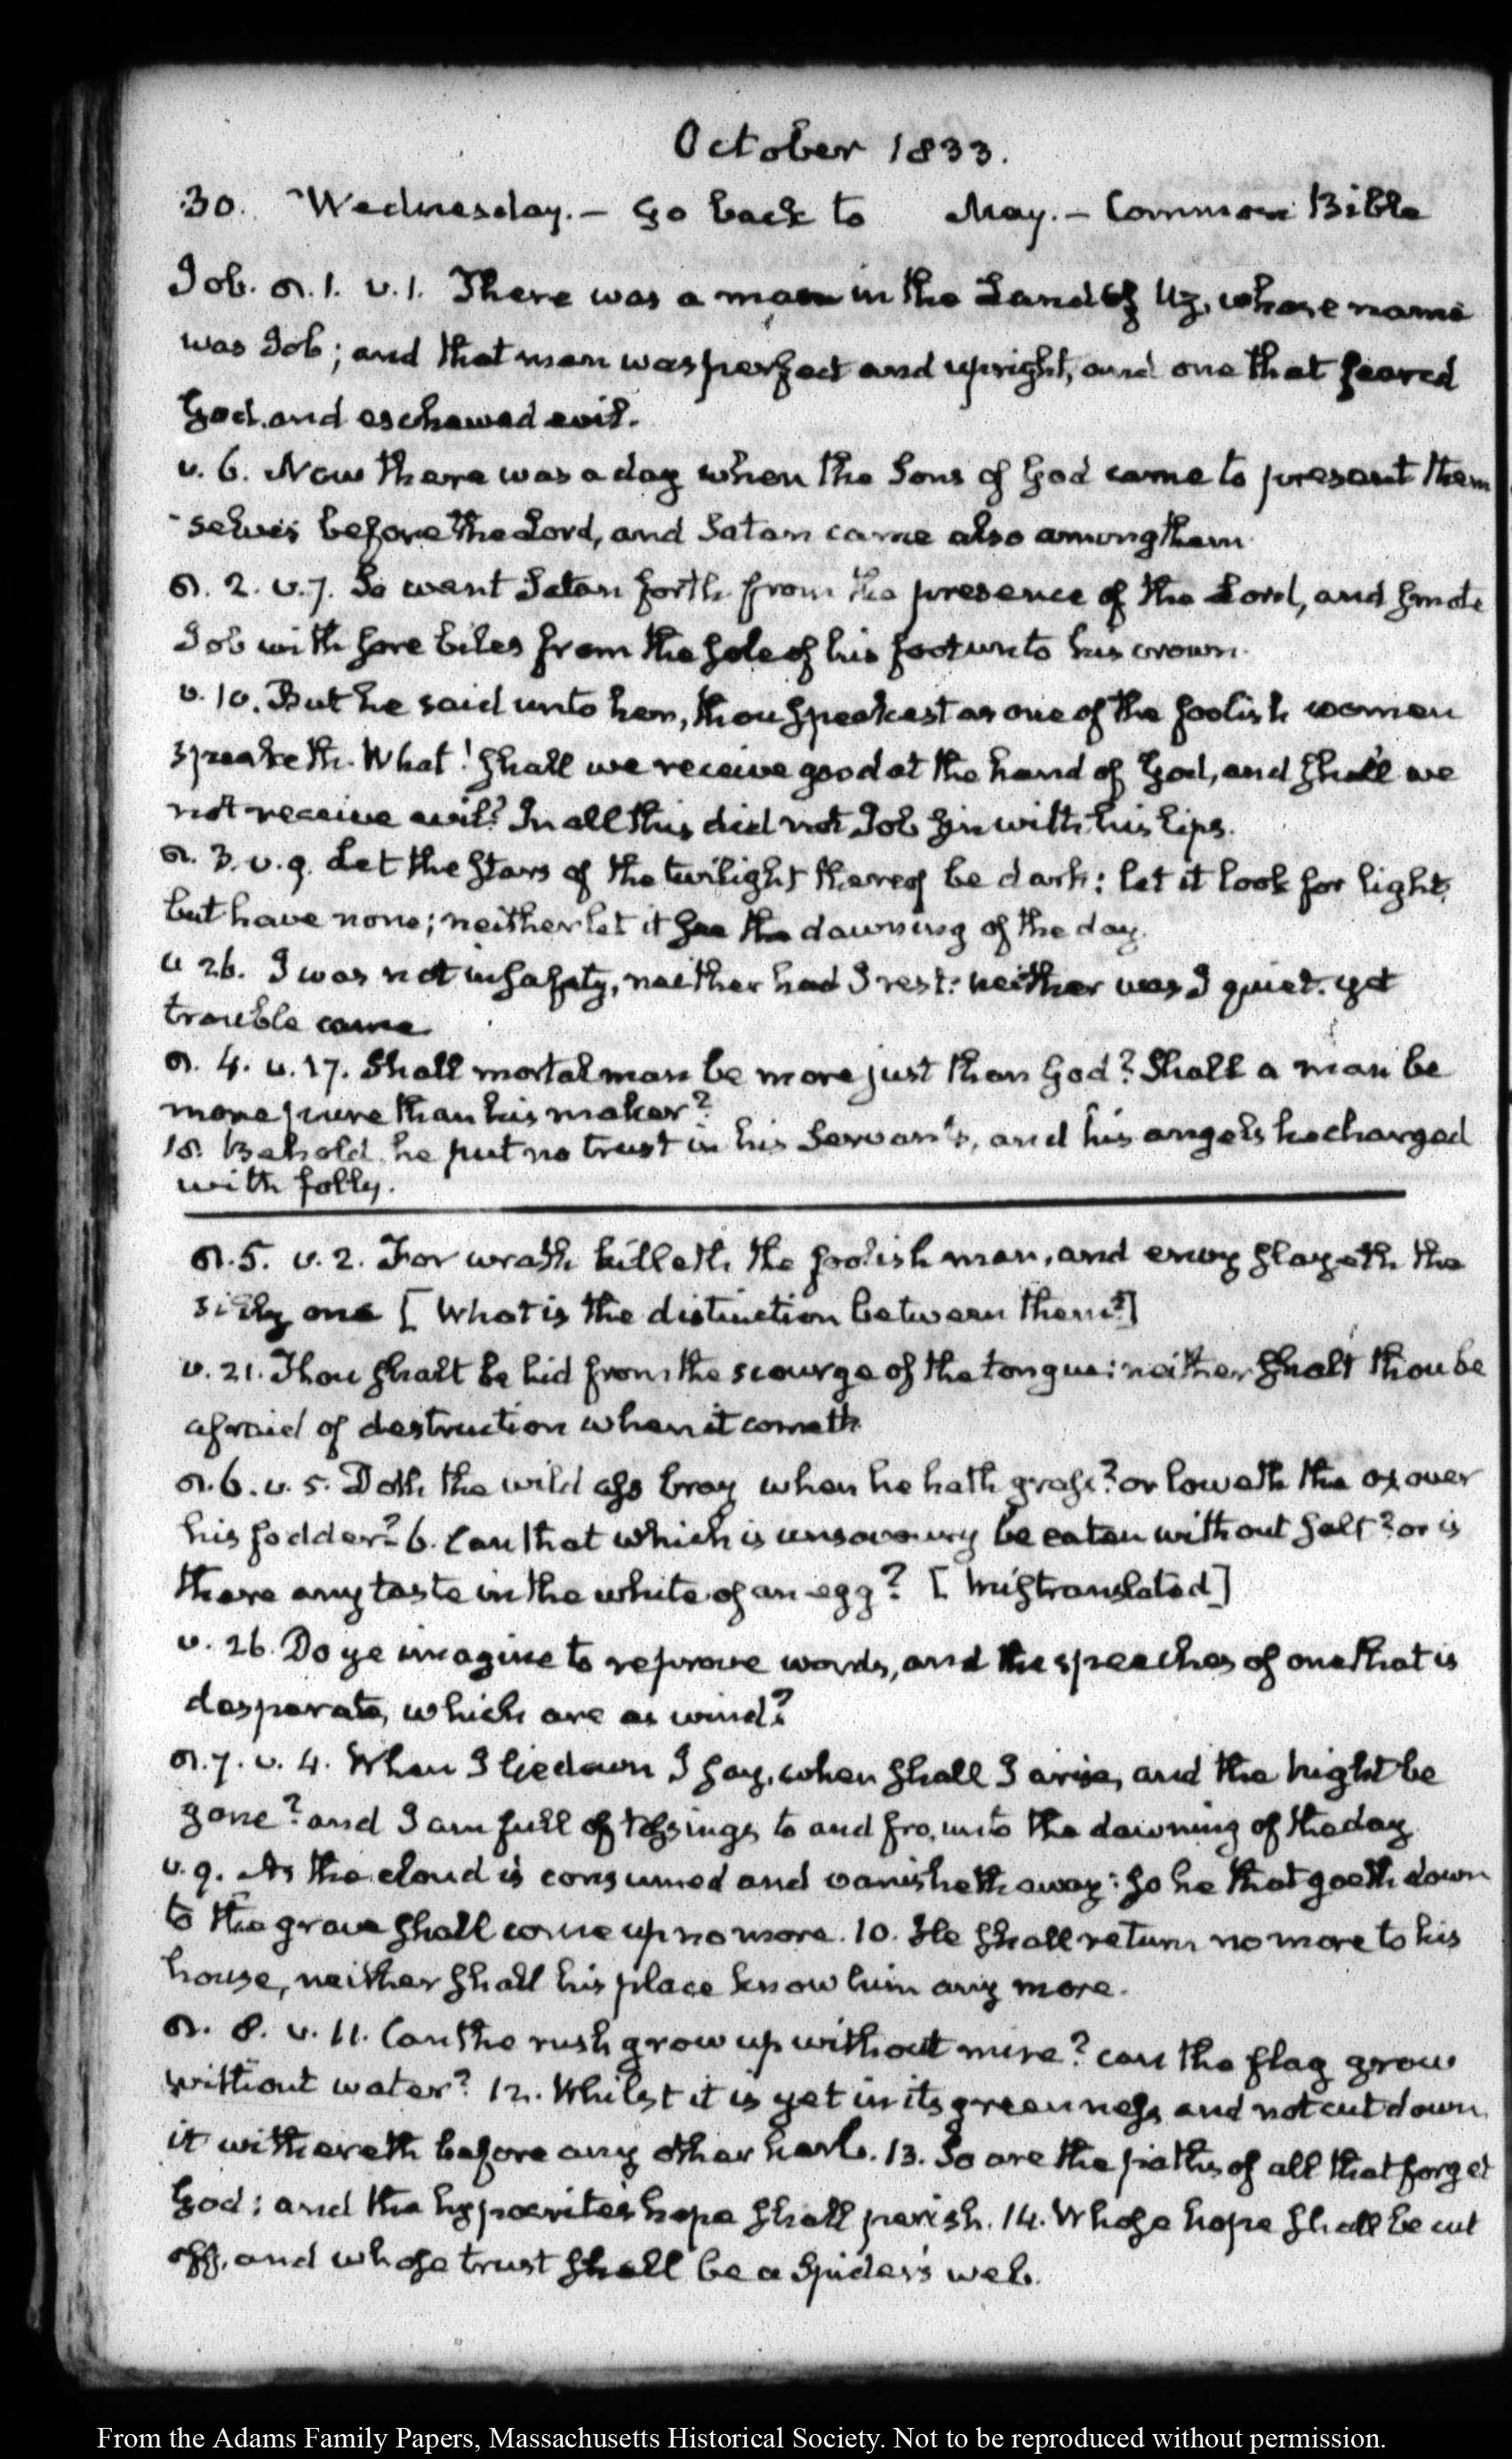 October 1833.
30. Wednesday.– Go back to May.– Common Bible
Job. c. 1. v. 1. There was a man in the Land of Uz, whose name
was Job; and that man was perfect and upright, and one that feared
God, and eschewed evil.
v. 6. Now there was a day when the Sons of God came to present them
-selves before the Lord, and Satan came also among them
c. 2. v. 7. So went Satan forth from the presence of the Lord, and smote
Job with sore biles from the sole of his foot unto his crown.
v. 10. But he said unto her, thou speakest as one of the foolish women
speaketh. What! shall we receive good at the hand of God, and shall we
not receive evil? In all this did not Job sin with his lips.
c. 3. v. 9. Let the stars of the twilight thereof be dark: let it look for light,
but have none; neither let it see the dawning of the day.
v 26. I was not in safety, neither had I rest: neither was I quiet. yet
trouble came
c. 4. v. 17. Shall mortal man be more just than God? Shall a man be
more pure than his maker?
18. Behold, he put no trust in his Servants, and his angels he charged
with folly.
c. 5. v. 2. For wrath killeth the foolish man, and envy slayeth the
silly one [What is the distinction between them?]
v. 21. Thou shalt be hid from the scourge of the tongue: neither shalt thou be
afraid of destruction when it cometh
c. 6. v. 5. Doth the wild ass bray when he hath grass? or loweth the ox over
his fodder? 6. Can that which is unsavoury be eaten without salt? or is
there any taste in the white of an egg? [Mistranslated]
v. 26. Do ye imagine to reprove words, and the speeches of one that is
desperate, which are as wind?
c. 7. v. 4. When I lie down I say, when shall I arise, and the night be
gone? and I am full of tossings to and fro, unto the dawning of the day
v. 9. As the cloud is consumed and vanisheth away: so he that goeth down
to the grave shall come up no more. 10. He shall return no more to his
house, neither shall his place know him any more.
c. 8. v. 11. Can the rush grow up without mire? can the flag grow
without water? 12. Whilst it is yet in its greenness and not cut down,
it withereth before any other herb. 13. So are the paths of all that forget
God: and the hypocrite's hope shall perish. 14. Whose hope shall be cut
off, and whose trust shall be a Spider's web.
From the Adams Family Papers, Massachusetts Historical Society. Not to be reproduced without permission.